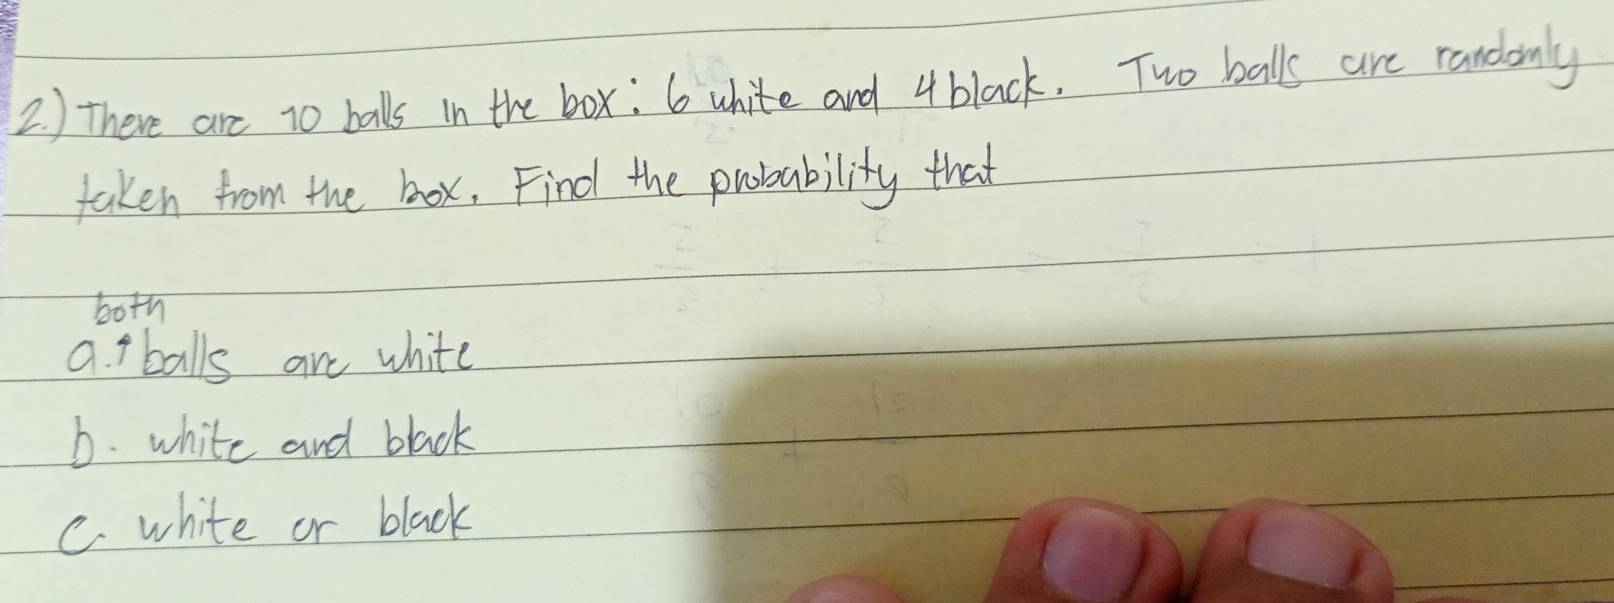 2.) There are 10 balls in the box: 6 white and 4 black. Two balls are randomly
taken from the box. Find the probability that
both
a. balls are white
b. white and black
c. white or black